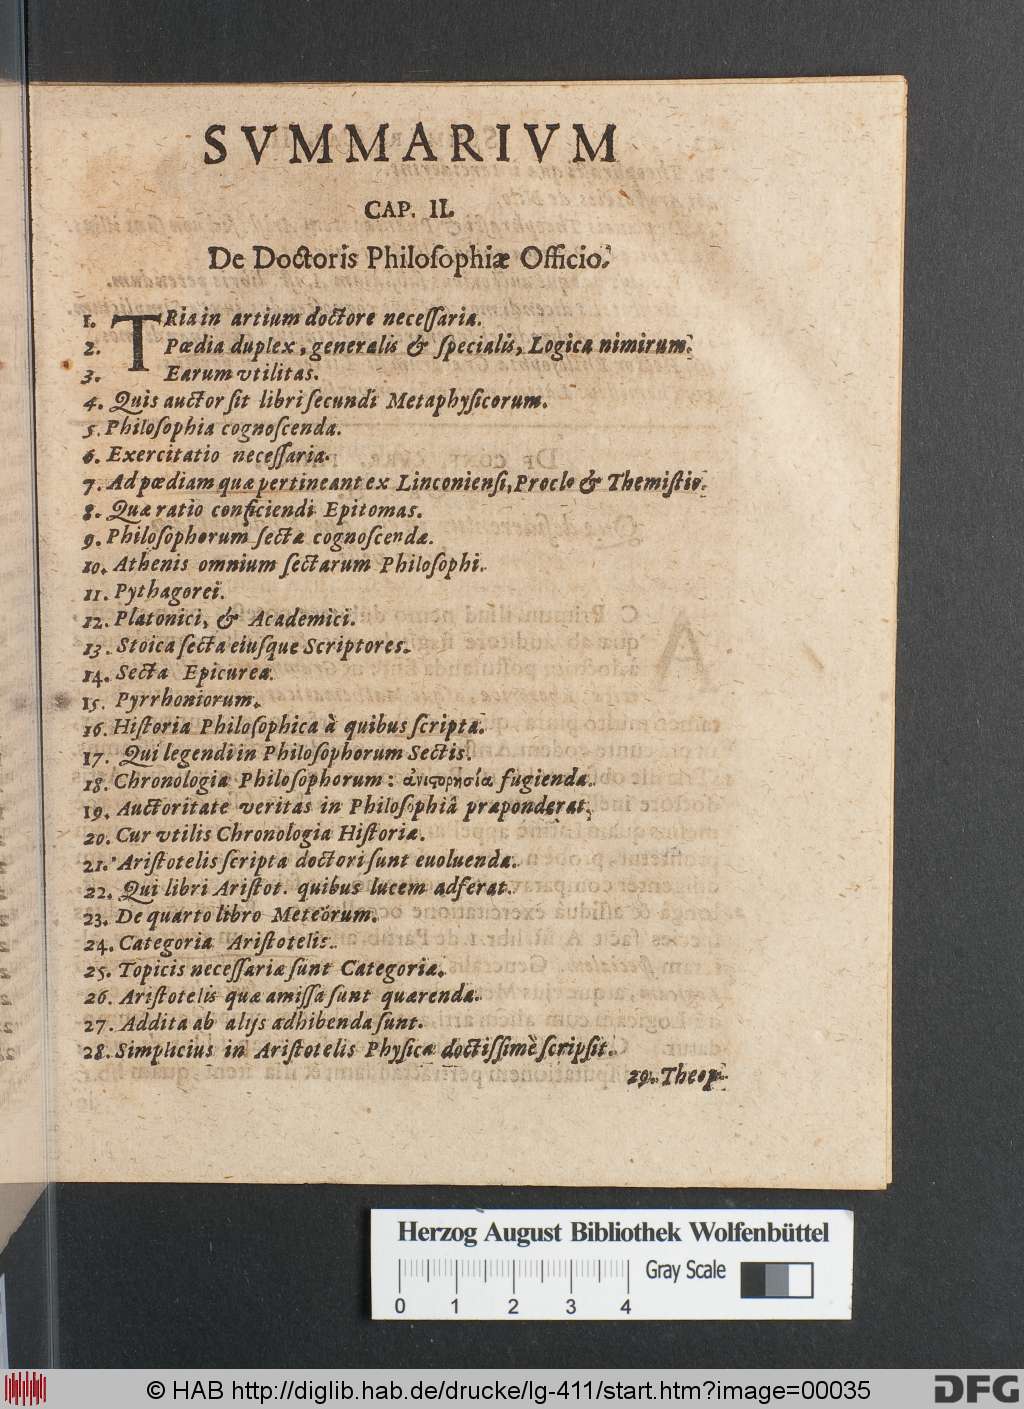 SVMMARIVM
CAP. II.
De Doctoris Philosophiæ Officio.
1. TRia in artium doctore necessaria.
2. Pædia duplex, generalis & specialis, Logica nimirum.
3. Earum vtilitas.
4. Quis auctor sit libri secundi Metaphysicorum.
5. Philosophia cognoscenda.
6. Exercitatio necessaria.
7. Ad pædiam quæ pertineant ex Linconiensi, Proclo & Themistio.
8. Quæ ratio conficiendi Epitomas.
9. Philosophorum sectæ cognoscendæ.
10. Athenis omnium sectarum Philosophi.
11. Pythagorei.
12. Platonici, & Academici.
13. Stoica secta eiusque Scriptores.
14. Secta Epicurea.
15. Pyrrhoniorum.
16. Historia Philosophica à quibus scripta.
17. Qui legendi in Philosophorum Sectis.
18. Chronologia Philosophorum: ἀνιστορησία fugienda.
19. Auctoritate veritas in Philosophiâ præponderat.
20. Cur vtilis Chronologia Historiæ.
21. Aristotelis scripta doctori sunt euoluenda.
22. Qui libri Aristot. quibus lucem adferat.
23. De quarto libro Meteôrum.
24. Categoria Aristotelis.
25. Topicis necessariæ sunt Categoriæ.
26. Aristotelis quæ amissa sunt quærenda.
27. Addita ab alijs adhibenda sunt.
28. Simplicius in Aristotelis Physica doctissimè scripsit.
29. Theop-
Herzog August Bibliothek Wolfenbüttel
Gray Scale
0 1 2 3 4
© HAB http://diglib.hab.de/drucke/lg-411/start.htm?image=00035
DFG